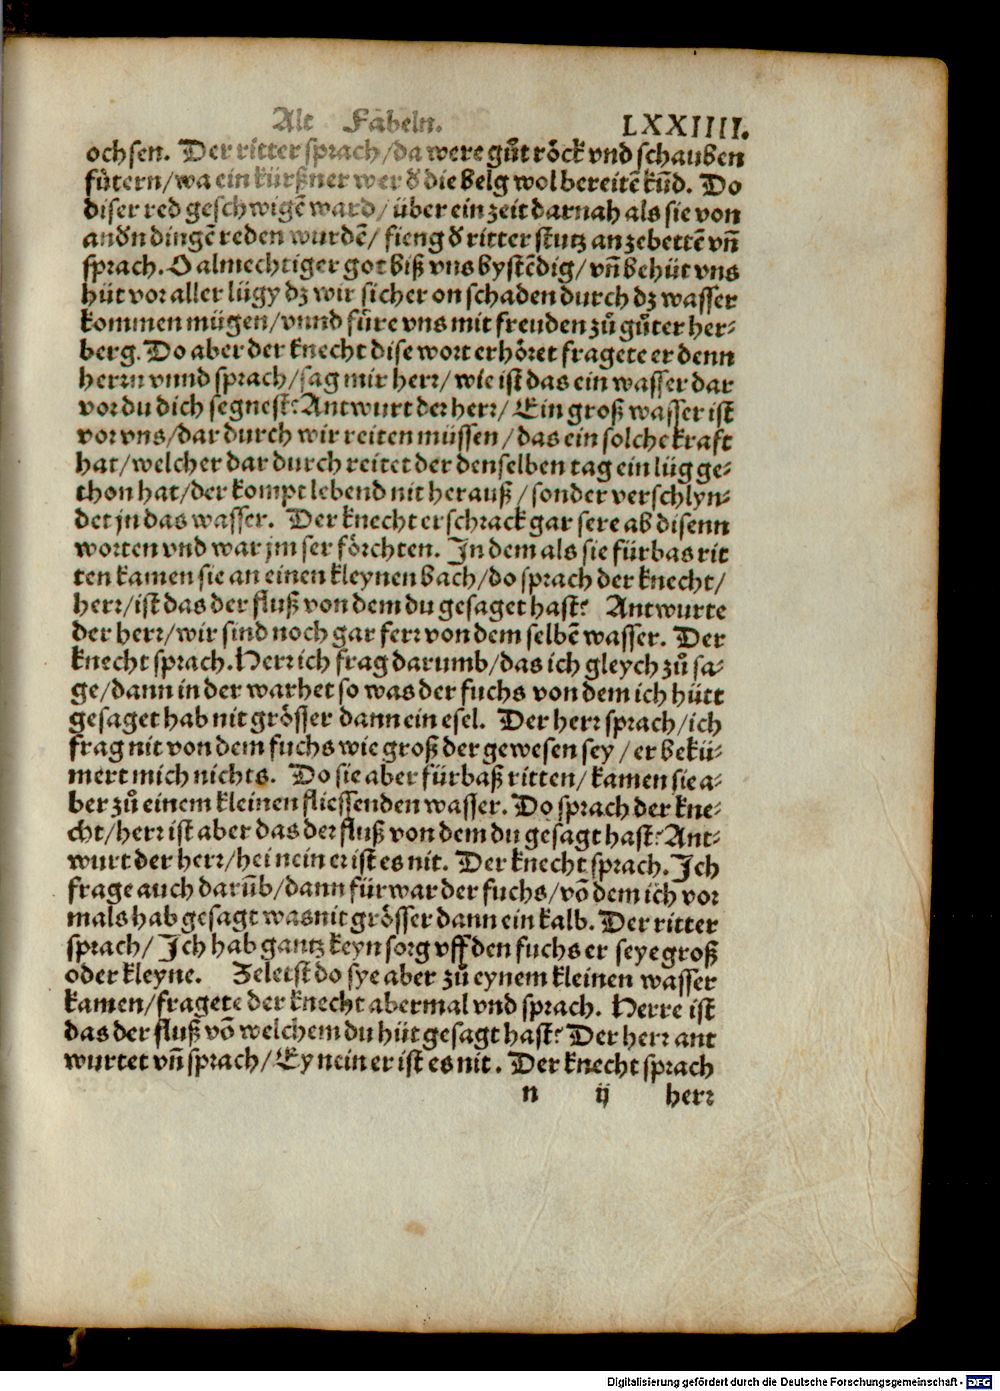 Alt Fabeln. LXXIIII.
ochsen. Der ritter sprach/da were gůt röck vnd schauben
fütern/wa ein kürßner wer d̕ die belg wol bereitē kūd. Do
diser red geschwigē ward/über ein zeit darnah als sie von
and̕n dingē reden wurdē/ fieng d̕ ritter stutz an zebettē vñ
sprach. O almechtiger got biß vns bystēdig/vñ behüt vns
hüt vor aller lügy dz wir sicher on schaden durch dz wasser
kommen mügen/vnnd fůre vns mit freuden zů gůter her-
berg. Do aber der knecht dise wort erhöret fragete er denn
herrn vnnd sprach/sag mir herr/wie ist das ein wasser dar
vor du dich segnest? Antwurt der herr/Ein groß wasser ist
vor vns/dar durch wir reiten müssen/das ein solche kraft
hat/welcher dar durch reitet der denselben tag ein lüg ge-
thon hat/der kompt lebend nit herauß/sonder verschlyn-
det jn das wasser. Der knecht erschrack gar sere ab disenn
worten vnd war jm ser förchten. In dem als sie fürbas rit
ten kamen sie an einen kleynen bach/do sprach der knecht/
herr/ist das der fluß von dem du gesaget hast? Antwurte
der herr/wir sind noch gar ferr von dem selbē wasser. Der
knecht sprach. Herr ich frag darumb/das ich gleych zů sa-
ge/dann in der warhet so was der fuchs von dem ich hütt
gesaget hab nit grösser dann ein esel. Der herr sprach/ich
frag nit von dem fuchs wie groß der gewesen sey/er bekü-
mert mich nichts. Do sie aber fürbaß ritten/kamen sie a-
ber zů einem kleinen fliessenden wasser. Do sprach der kne-
cht/herr ist aber das der fluß von dem du gesagt hast? Ant-
wurt der herr/hei nein er ist es nit. Der knecht sprach. Ich
frage auch darūb/dann fürwar der fuchs/vō dem ich vor
mals hab gesagt was nit grösser dann ein kalb. Der ritter
sprach/ Ich hab gantz keyn sorg vff den fuchs er seye groß
oder kleyne. Zeletst do sye aber zů eynem kleinen wasser
kamen/fragete der knecht abermal vnd sprach. Herre ist
das der fluß vō welchem du hüt gesagt hast? Der herr ant
wurtet vñ sprach/Ey nein er ist es nit. Der knecht sprach
n ij herr
Digitalisierung gefördert durch die Deutsche Forschungsgemeinschaft - DFG